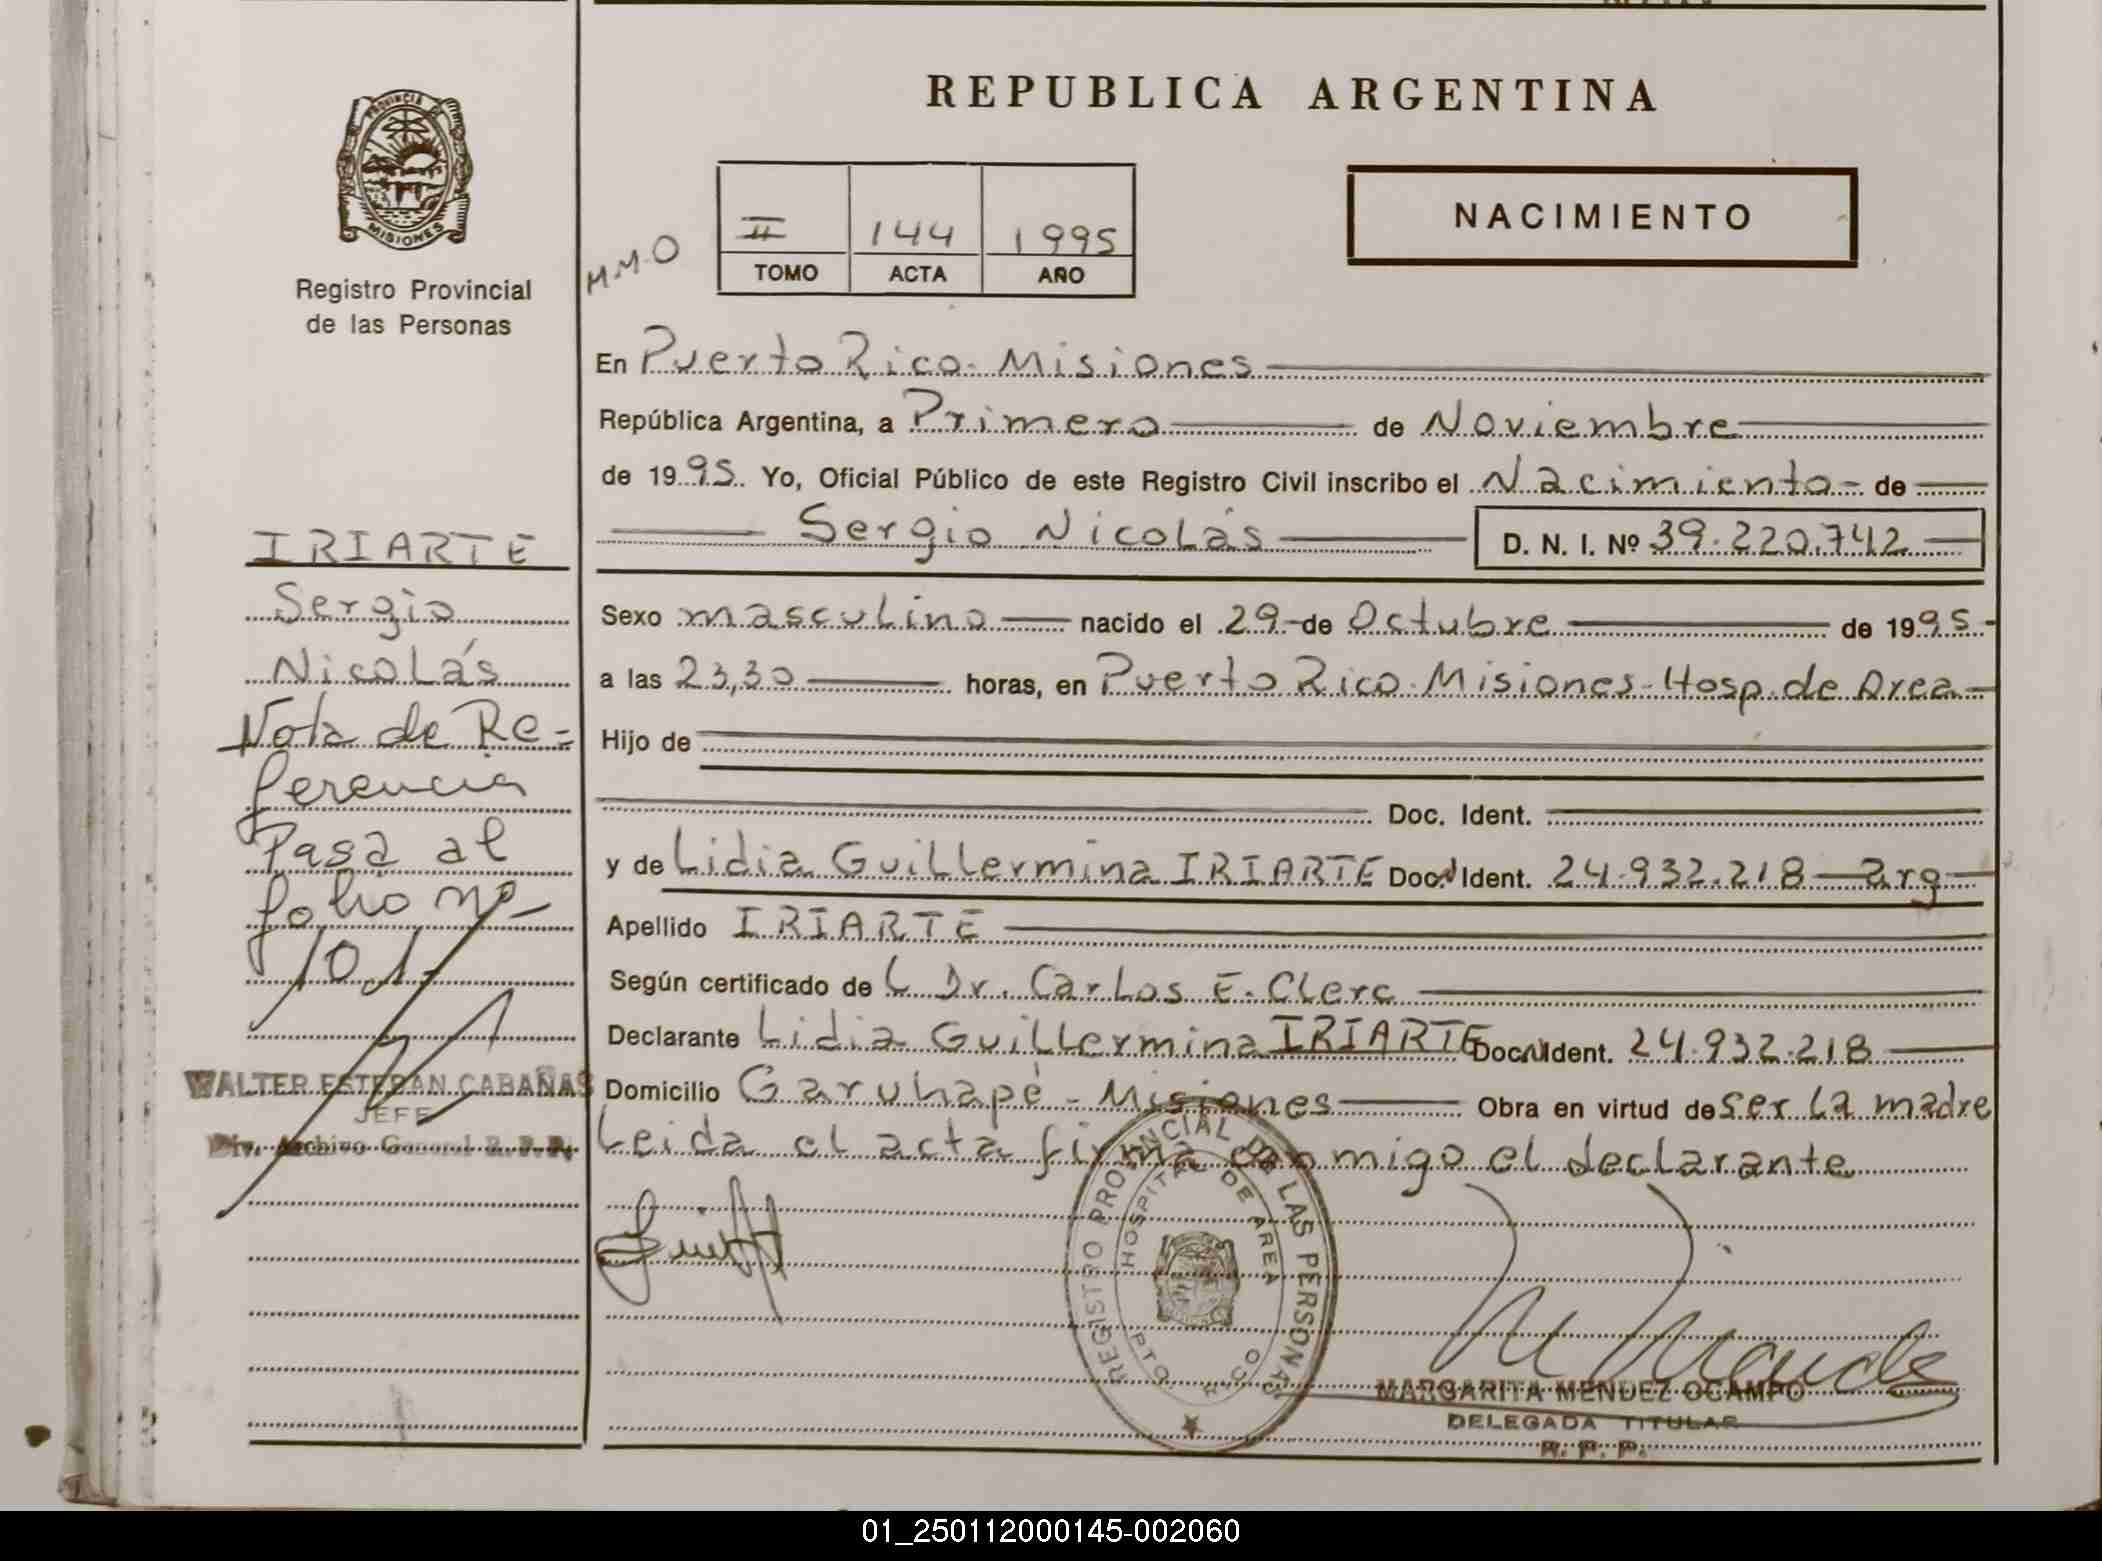 REPUBLICA ARGENTINA
PROVINCIA DE
MISIONES
Registro Provincial
de las Personas
M.M.O
II 144 1995
TOMO ACTA AÑO
NACIMIENTO
En Puerto Rico. Misiones
República Argentina, a Primero de Noviembre
de 1995. Yo, Oficial Público de este Registro Civil inscribo el Nacimiento de
Sergio Nicolás D. N. I. Nº 39.220.742
Sexo masculino nacido el 29 de Octubre de 1995
a las 23,30 horas, en Puerto Rico. Misiones-Hosp. de Area
Hijo de
Doc. Ident.
y de Lidia Guillermina IRIARTE Doc. Ident. 24.932.218 arg
Apellido IRIARTE
Según certificado de L Dr. Carlos E. Clerc
Declarante Lidia Guillermina IRIARTE Doc. Ident. 24.932.218
Domicilio Garuhapé - Misiones Obra en virtud de ser la madre
Leida el acta firma conmigo el declarante
IRIARTE
Sergio
Nicolás
Nota de Re=
ferencia
Pasa al
folio nº
101
WALTER ESTEBAN CABAÑAS
JEFE
Div. Archivo General R. P. P.
REGISTRO PROVINCIAL DE LAS PERSONAS
HOSPITAL DE AREA
PTO. RICO
MARGARITA MENDEZ OCAMPO
DELEGADA TITULAR
R. P. P.
01_250112000145-002060